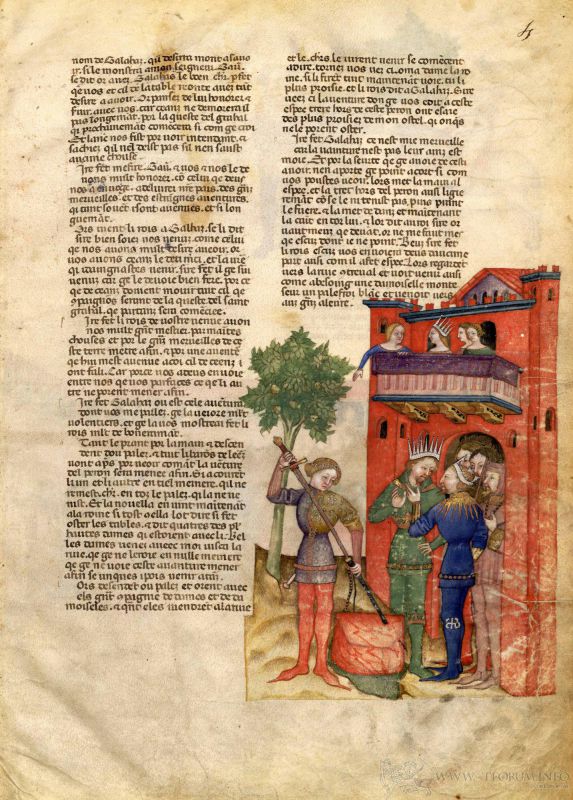 nom de Galahat. qu desirra mont a sauo
ir. si le monstra a mon seigneur Gau.
se dit or auez. Galahas le boen chr. pfet
que uos et cil de la table reonte auez tāt
desire a auoir. Or pensez de lui honorer &
auec nos. car ceanz ne demorera il
pas longemāt. por la queste del grahal
qi prochainemāt comēcera si com ge croi
Et lanc nos fist por uoir intendant. &
sachiez qil nel deist pas sil nen saust
aucune chouse.
Sire fet mesire. Gau. & uos & nos le de
uons mult honorer. cō celui que deus
nos a enuoiez. a deliurer nrē pais. des grāz
merueilles et des estranges auentures.
qi tant souēt isont auenues. et si lon
guemāt.
Ors uient li rois a Galhaz. se li dit
sire bien soiez uos uenuz. come celui
que nos auons mult desire a ueoir. or
uos auons ceanz le deu mci. et la urē
qi daingnastes uenir. sire fet il ge sui
uenuz car ge le deuoie bien fere. por ce
que de ceanz doiuent mouir tuit cil qe
9paignon seront de la queste del saint
grahal. qe partanz sera comēcee.
Sire fet li rois de uostre uenue auion
nos mult grāt mestier. par maites
chouses et por le grāz merueilles de ce
ste terre metre a fin. & por une auentē
qe hui mest auenue a coi cil de ceenz i
ont falli. Car por ce uos a deus enuoie
entre nos qe uos parfacez ce qe li au
tre ne porent mener a fin.
Sire fet Galahaz ou est cele auētura
dont uos me pallez. ge la ueroie mlt
uolentiers. et ge la uos mostrai fet li
rois mlt de bonemāt.
Tant le prant por la main. & descen
dent dou palez. & tuit li barōs de leēz
uont aps por ueoir comāt la uētura
del peron sera menee a fin. Et acourēt
li un et li autre en tiel meniere. qil ne
remest. chr. en tot le palez. qi la ne ue
nist. Et la nouella en uint maitenāt
a la roine si tost qella lot dire si fet
oster les tables. & dit quatres des pl'
hautes dames qi estoient auec li. Bel
les dames uenez auecc moi iusca la
riue. qe ge ne leroie en nulle meniere
qe ge ne uoie ceste auanture mener
a fin se unques i puis uenir a tans.
Ors descent ou palez et orent auec
els grāt 9paigniē de dames et de da
moiseles. & qāt eles iuendrēt a la riue
et le. chrs. le uirent uenir se comēcent
a dire. tornez uos uez ci. oma dame la ro
ine. si li firēt tuit maintenāt uoie. tu li
plus proisie. et li rois dit a Galahaz. Sire
ueez ci lauenture don ge uos edis a ceste
espee trere hors de cest peron ont esaie
des plus proisiez de mon ostel. qi onqs
ne le porent oster.
Sire fet Galahaz ce nest mie merueille
car la uanture nest pas leur ainz est
moie. Et por la seurte qe ge auoie de cesti
auoir. nen aporte ge point a coit si com
uos poustes ueoir. lors met la main al
espee. et la tret hors del peron ausi lige
remāt cō se le ni tenist pas. puis prant
le fuere. & la met dedanz et maintenant
la ceint en tor lui. & lor dit a uoi sire or
uaut meuz qe deuāt. or ne me faut mer
qe escu dont ie ne point. Beuz sire fet
li rois escuz uos enuoiera deus daucune
part ausi com il a fet espee. Lors regardēt
uers la riue contreual et uoit uenir ausi
come a besoing une damoiselle monte
seur un palefroi blāc et uenoit uers
aus grāt aleure.
WWW.TFORUM.INFO